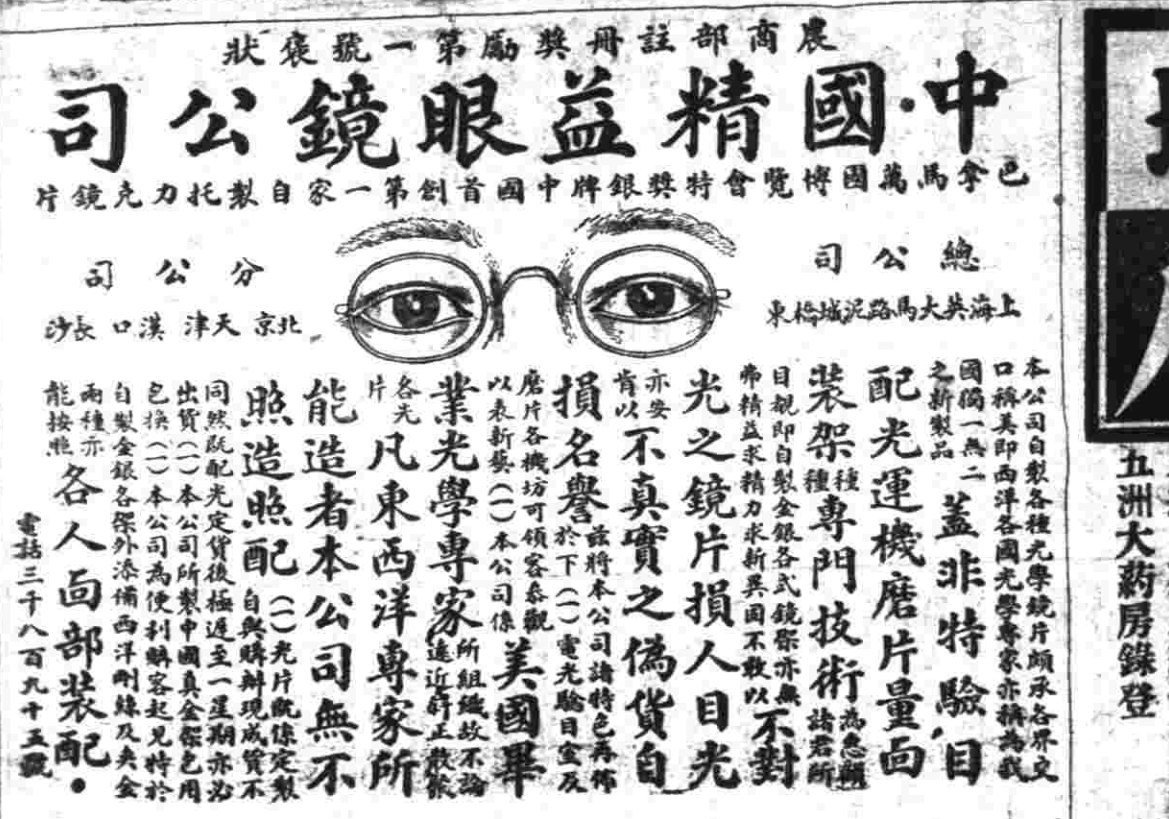 農商部註冊獎勵第一號褒狀
中國精益眼鏡公司
巴拿馬萬國博覽會特獎銀牌中國首創第一家自製托力克鏡片
總公司
上海英大馬路泥城橋東
分公司
北京 天津 漢口 長沙
本公司自製各種光學鏡片頗承各界交
口稱美即西洋各國光學專家亦稱為我
國獨一無二
之新製品
蓋非特驗目
配光運機磨片量面
裝架種種專門技術為急顧諸君所
目覩即自製金銀各式鏡架亦無
弗精益求精力求新異固不敢以
不對
光之鏡片損人目光
亦安肯以不真實之偽貨自
損名譽茲將本公司諸特色再佈
於下(一)電光驗目室及
磨片各機坊可領客參觀
以表新藝(一)本公司係
美國畢
業光學專家所組織故不論
遠近斜正散張
各光片凡東西洋專家所
能造者本公司無不
照造照配(一)光片既係定製
自與購辦現成貨不
同然既配光定貨後極遲至一星期亦必
出貨(一)本公司所製中國真金架包用
包換(一)本公司為便利購客起見特於
自製金銀各架外添備西洋剛絲及夾金
兩種亦能按照各人面部裝配
電話三千八百九十五號
五洲大葯房錄登